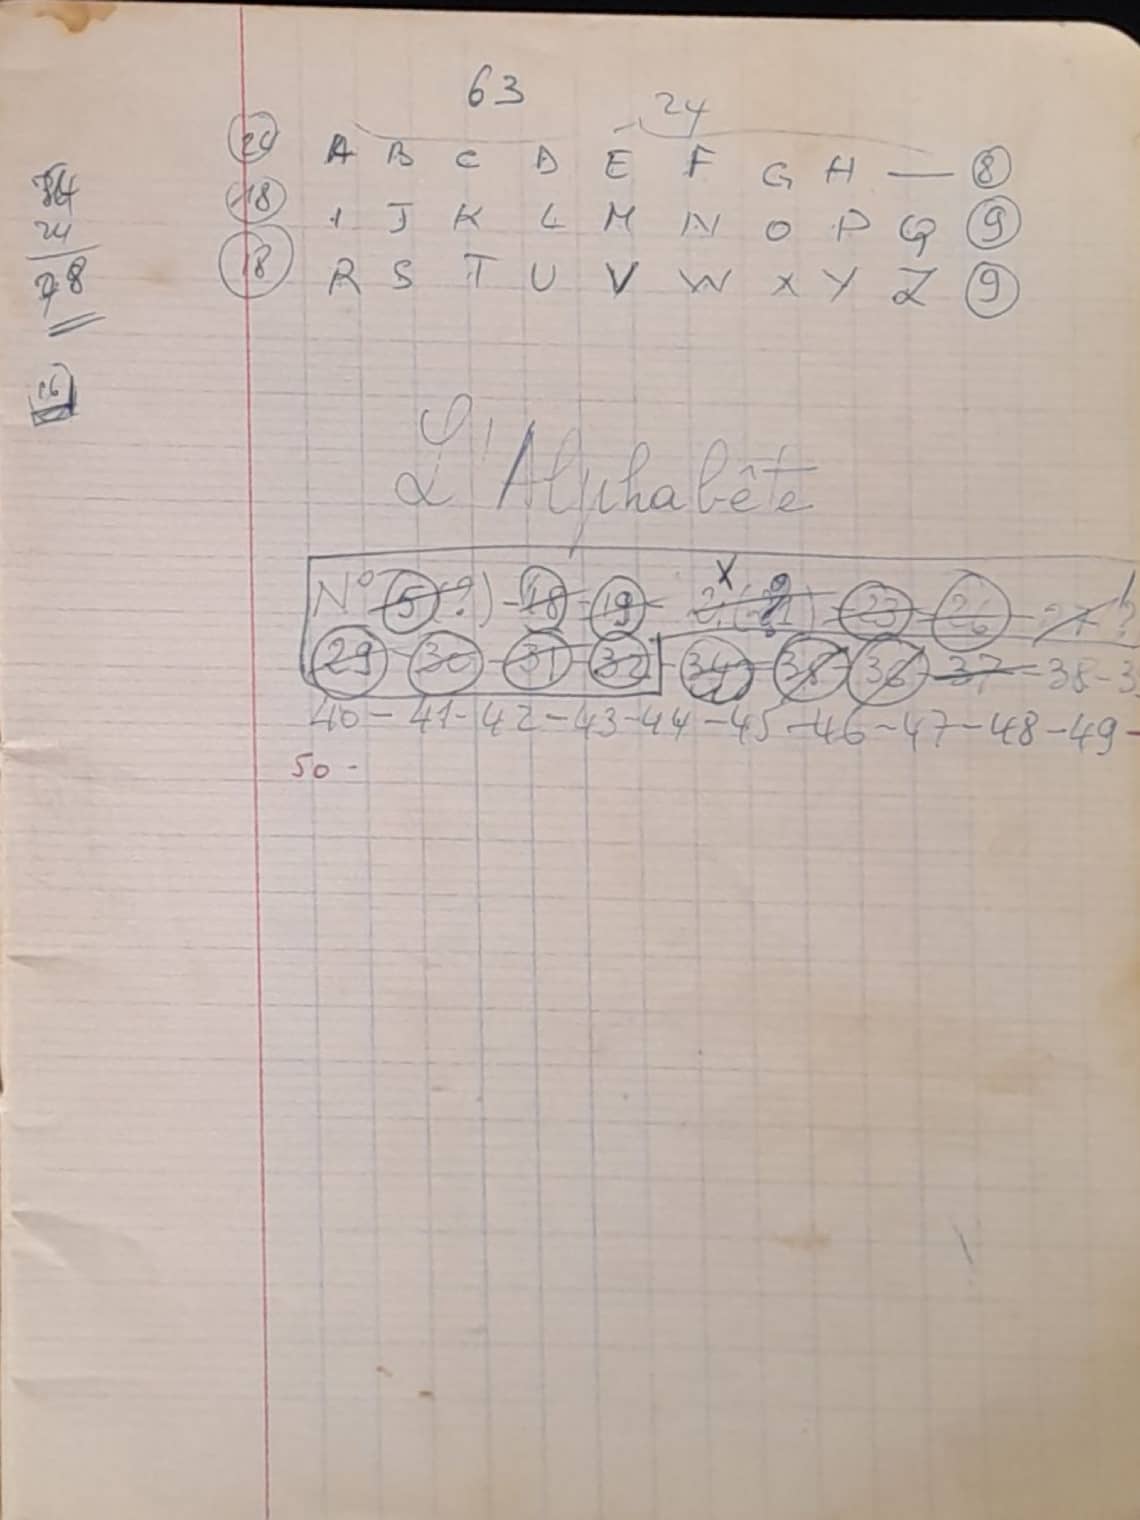 63
24
A B C D E F G H — 8
18 I J K L M N O P Q 9
18 R S T U V W X Y Z 9
24
16
L'Alphabête
N° 5 (?) - 18 - 19 - 23 - 26 - 27 ?
29 - 30 - 31 - 32 - 34 - 36 - 37 - 38 - 3
40 - 41 - 42 - 43 - 44 - 45 - 46 - 47 - 48 - 49 -
50 -